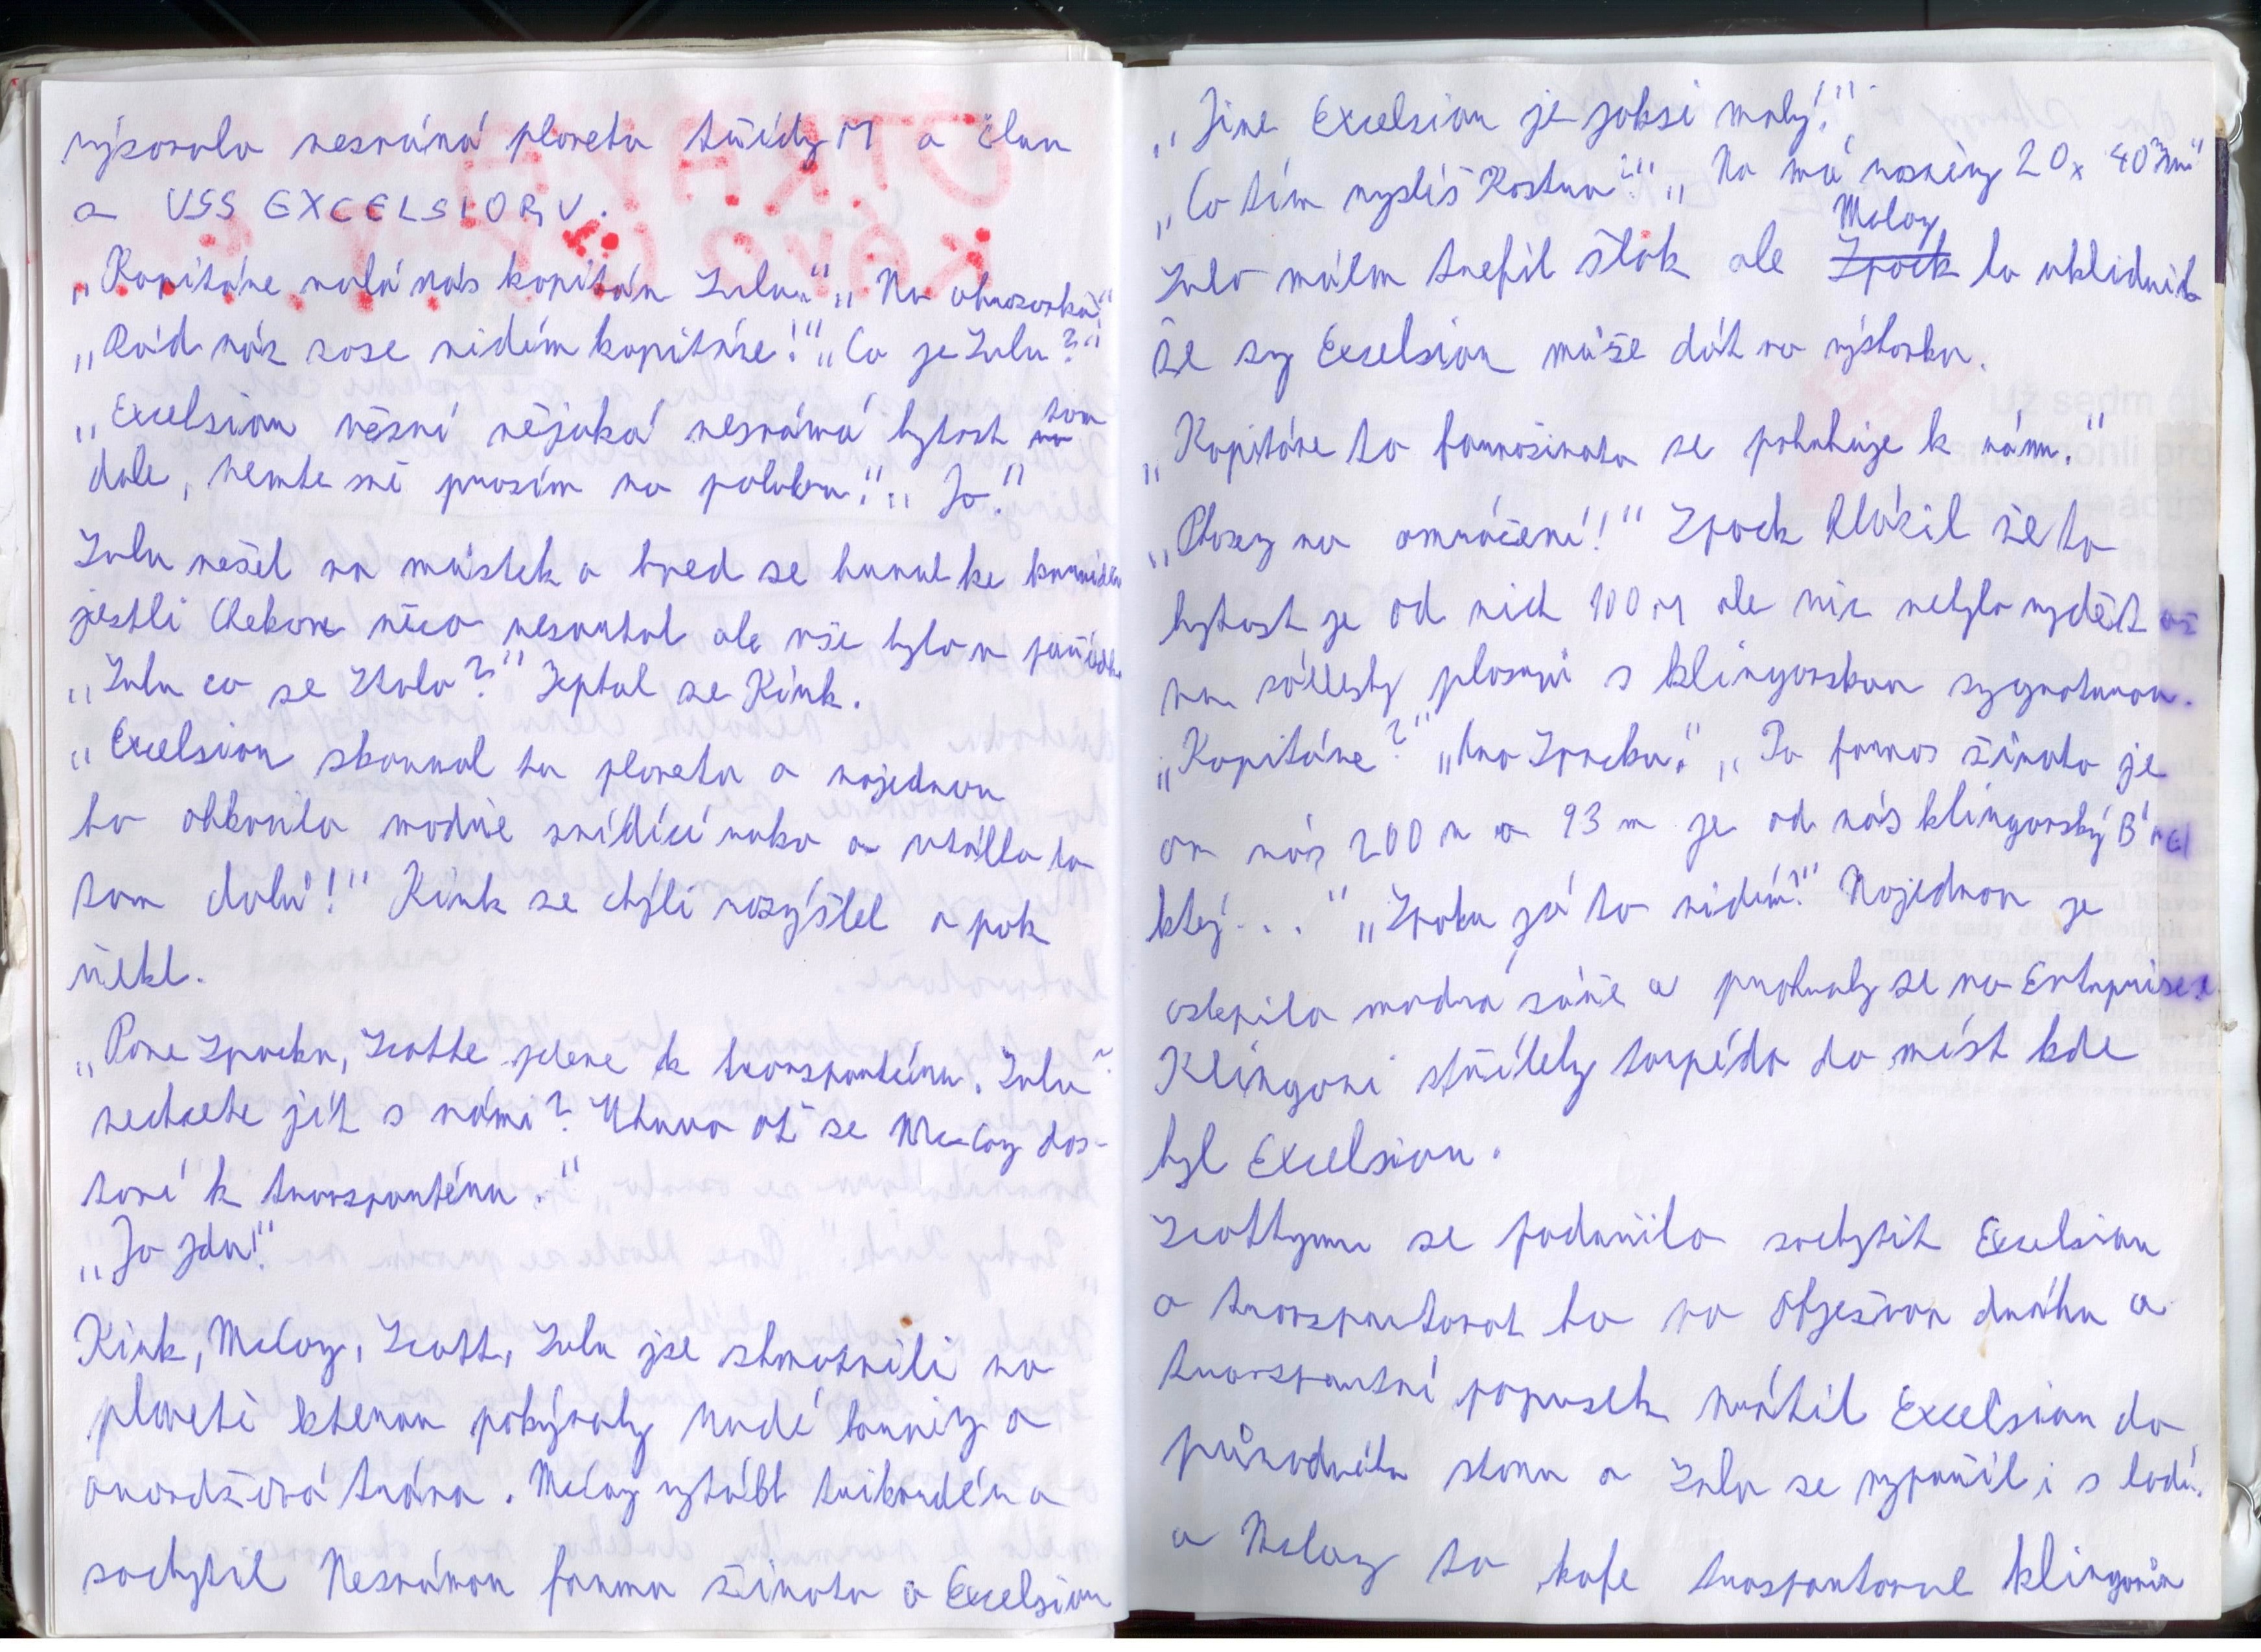 neznámá planeta třídy M a člun
a USS EXCELSIOR V.
„Kapitáne volá nás kapitán Zulu." „Na obrazovku"
„Rád vás zase vidím kapitáne!" „Co je Zulu?"
„Excelsior vězní nějaká neznámá bytost tam
dole, vemte mě prosím na palubu." „Jo."
Zulu vešel na můstek a hned se hnul ke
jestli Chekov něco nesmutal ale vše bylo v pořádku
„Zulu co se Stalo?" Zeptal se Kirk.
„Excelsior skanoval tu planetu a najednou
ho obkorilo modře svídící ruka a utáhla ho
tam dolů!" Kirk se chýli rozýšlel a pak
řekl.
„Pane Zpocku, Scotte jdeme k transportéru. Zulu
nechcete jít s námi? Uhuro ať se McCoy dos-
taví k transportéru."
„Jo jdu!"
Kirk, McCoy, Scott, Zulu jse zhmotnili na
planetě kterou pokývaly Rudé
oranžová tráva. McCoy vytáhl trikordér a
zachytil Neznámou formu života a Excelsior
„Jime Excelsior je jaksi malý!"
„Co tím myslíš Kostro?" „No má rozměry 20x 40 mm"
Zulo málem trefil šlak ale McCoy Zpock ho uklidnil
že zy Excelsior může dát na výstavku.
„Kapitáne ta formaživota se pohybuje k nám."
„Phasery na omráčení!" Zpock hlásil že ta
bytost je od nich 100 M ale nic nebylo vydět až
na záblesty plasmi s klingonskou sygnaturou.
„Kapitáne?" „Ano Zpocku." „Ta formas života je
on nás 200 m a 93 m je od nás klingonský B'rel
kteý..." „Zpoku já to vidím!" Najednou je
oslepila modra záře a probraly se na Enterprise.
Klingoni stříleli torpéda do míst kde
byl Excelsior.
Scottymu se podařilo zachytit Excelsior
a transportovat ho na Objěžnou dráhu a
transportní paprsek vrátil Excelsior do
původního stavu a Zulu se vypařil i s lodí.
a McCoy ta kafe transportoval klingonům